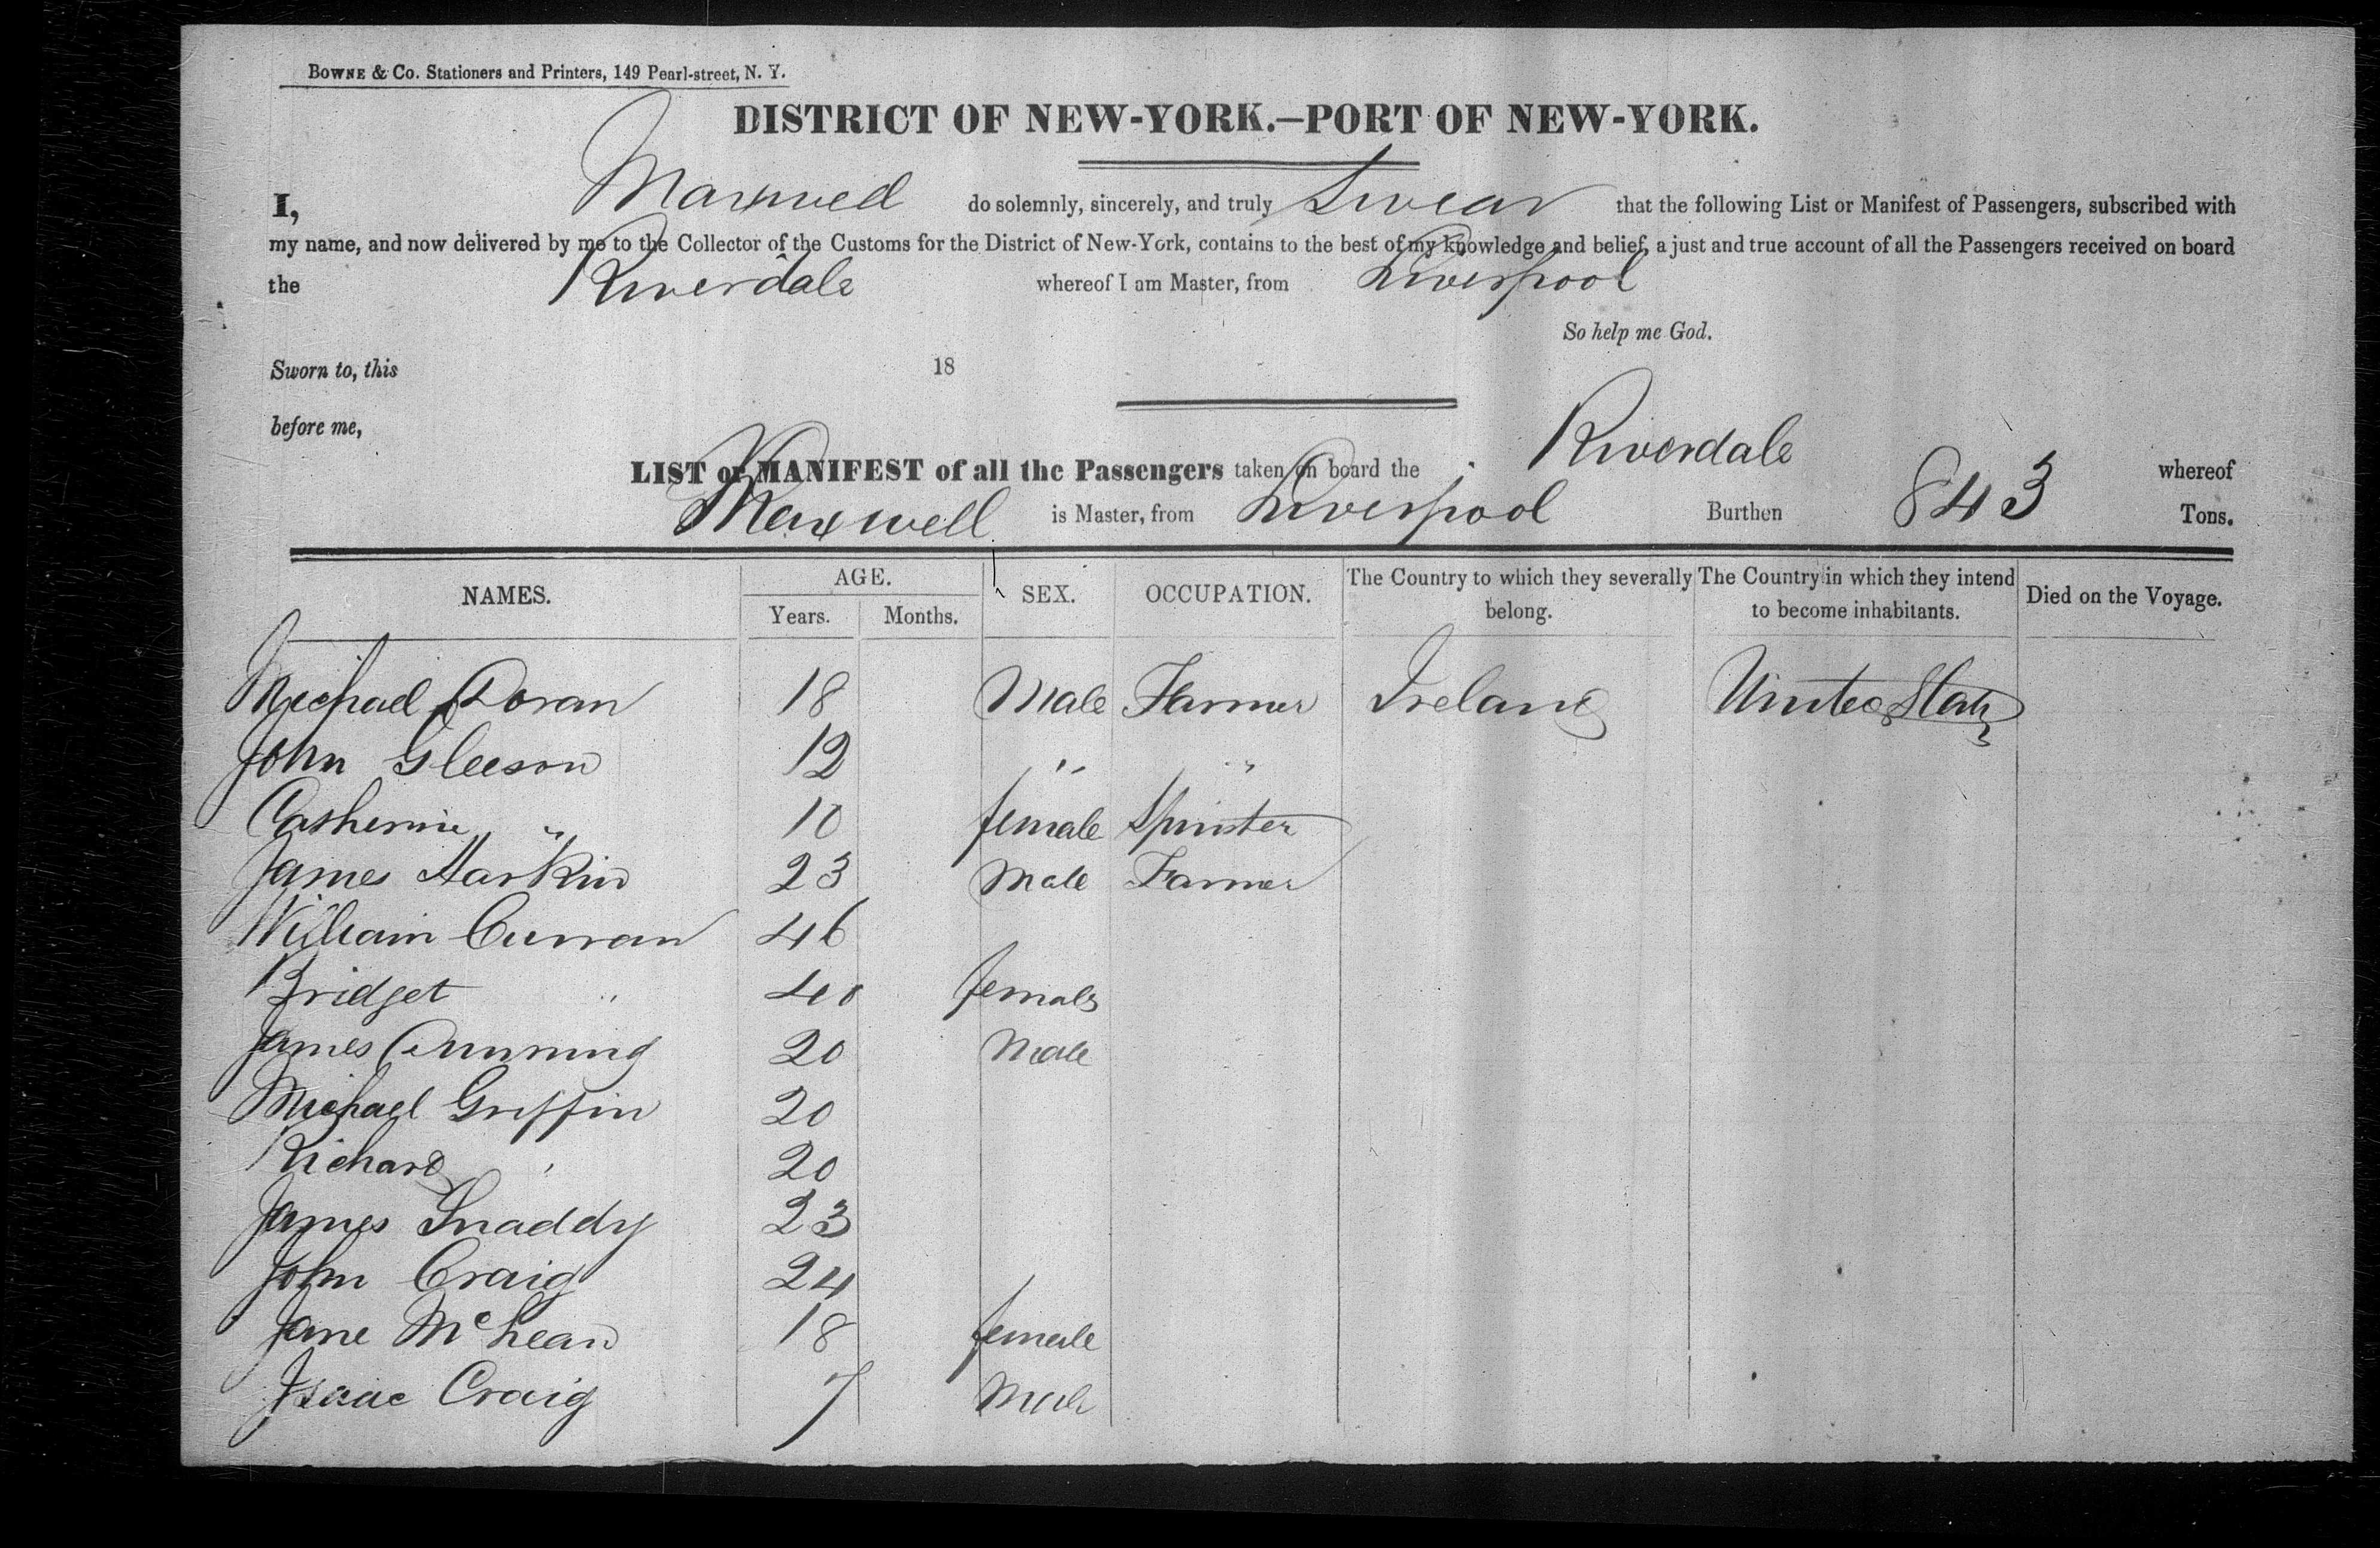 BOWNE & Co. Stationers and Printers, 149 Pearl-street, N. Y.
DISTRICT OF NEW-YORK.—PORT OF NEW-YORK.
I, Maxwell do solemnly, sincerely, and truly Swear that the following List or Manifest of Passengers, subscribed with
my name, and now delivered by me to the Collector of the Customs for the District of New-York, contains to the best of my knowledge and belief, a just and true account of all the Passengers received on board
the Riverdale whereof I am Master, from Liverpool
So help me God.
Sworn to, this 18
before me,
LIST or MANIFEST of all the Passengers taken on board the Riverdale whereof
Maxwell is Master, from Liverpool Burthen 843 Tons.
NAMES. AGE. Years. Months. SEX. OCCUPATION. The Country to which they severally belong. The Country in which they intend to become inhabitants. Died on the Voyage.
Michael Doran 18 Male Farmer Ireland United States
John Gleeson 12 " "
Catherine " 10 female Spinster
James Harkin 23 Male Farmer
William Curran 46
Bridget " 40 female
James Cunning 20 Male
Michael Griffin 20
Richard " 20
James Snaddy 23
John Craig 24
Jane McLean 18 female
Isaac Craig 7 Male